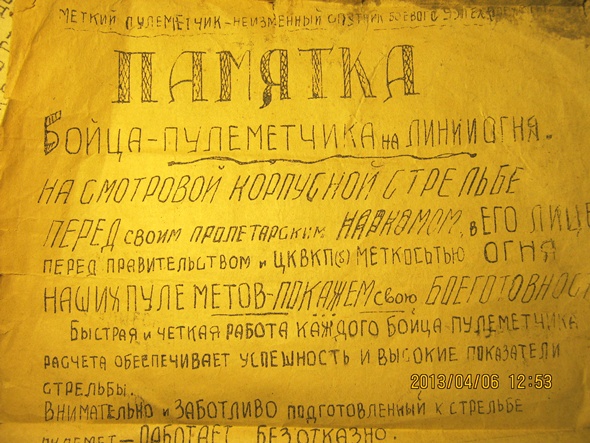 МЕТКИЙ ПУЛЕМЕТЧИК-НЕИЗМЕННЫЙ СПУТНИК БОЕВОГО УСПЕХА
ПАМЯТКА
БОЙЦА-ПУЛЕМЕТЧИКА НА ЛИНИИ ОГНЯ.
НА СМОТРОВОЙ КОРПУСНОЙ СТРЕЛЬБЕ
ПЕРЕД СВОИМ ПРОЛЕТАРСКИМ НАРКОМОМ, В ЕГО ЛИЦЕ
ПЕРЕД ПРАВИТЕЛЬСТВОМ И ЦКВКП(Б) МЕТКОСЬТЬЮ ОГНЯ
НАШИХ ПУЛЕМЕТОВ-ПОКАЖЕМ СВОЮ БОЕГОТОВНОСТ
БЫСТРАЯ И ЧЕТКАЯ РАБОТА КАЖДОГО БОЙЦА-ПУЛЕМЕТЧИКА
РАСЧЕТА ОБЕСПЕЧИВАЕТ УСПЕШНОСТЬ И ВЫСОКИЕ ПОКАЗАТЕЛИ
СТРЕЛЬБЫ.
ВНИМАТЕЛЬНО И ЗАБОТЛИВО ПОДГОТОВЛЕННЫЙ К СТРЕЛЬБЕ
ПУЛЕМЕТ-РАБОТАЕТ БЕЗОТКАЗНО.
2013/04/06 12:53